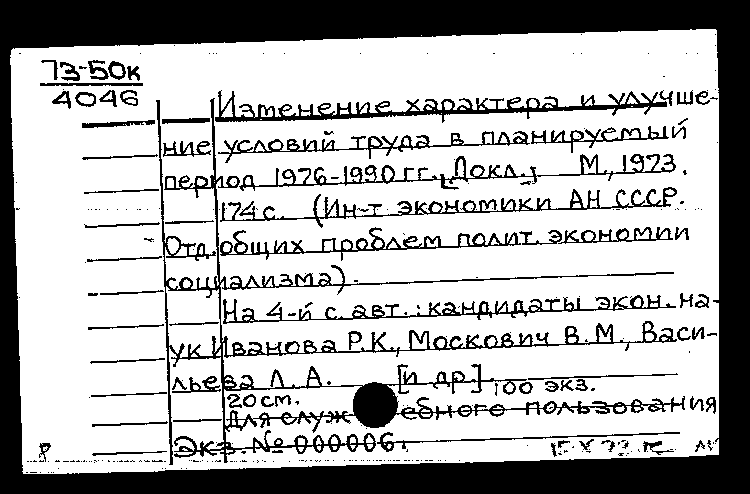 73-50к
4046
Изменение характера и улучше-
ние условий труда в планируемый
период 1976-1990 гг. [Докл.] М., 1973.
174 с. (Ин-т экономики АН СССР.
Отд. общих проблем полит. экономии
социализма).
На 4-й с. авт.: кандидаты экон. на-
ук Иванова Р.К., Москович В.М., Васи-
льева Л. А. [и др.]. 100 экз.
20 см.
Для служебного пользования
Экз. № 000006.